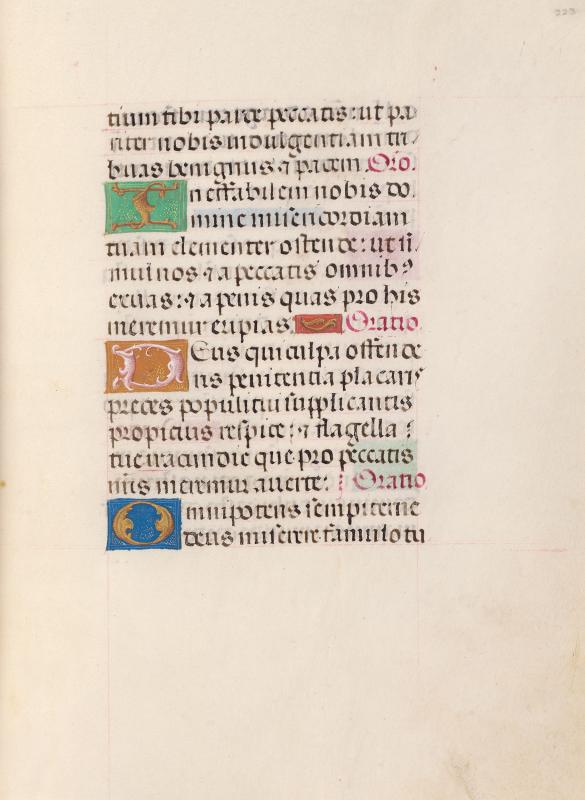 223
tium tibi parce peccatis: ut pa
riter nobis indulgentiam tri/
buas benignus ⁊ pacem. Oro.
Ineffabilem nobis do
mine misericordiam
tuam clementer ostende: ut si/
mul nos ⁊ a peccatis omnibꝰ
exuas: ⁊ a penis quas pro his
meremur eripias. Oratio.
Deus qui culpa offende
ris penitentia placaris
preces populi tui supplicantis
propicius respice: ⁊ flagella
tue iracundie que pro peccatis
nr̃is meremur auerte: Oratio
Omnipotens sempiterne
deus miserere famulo tu